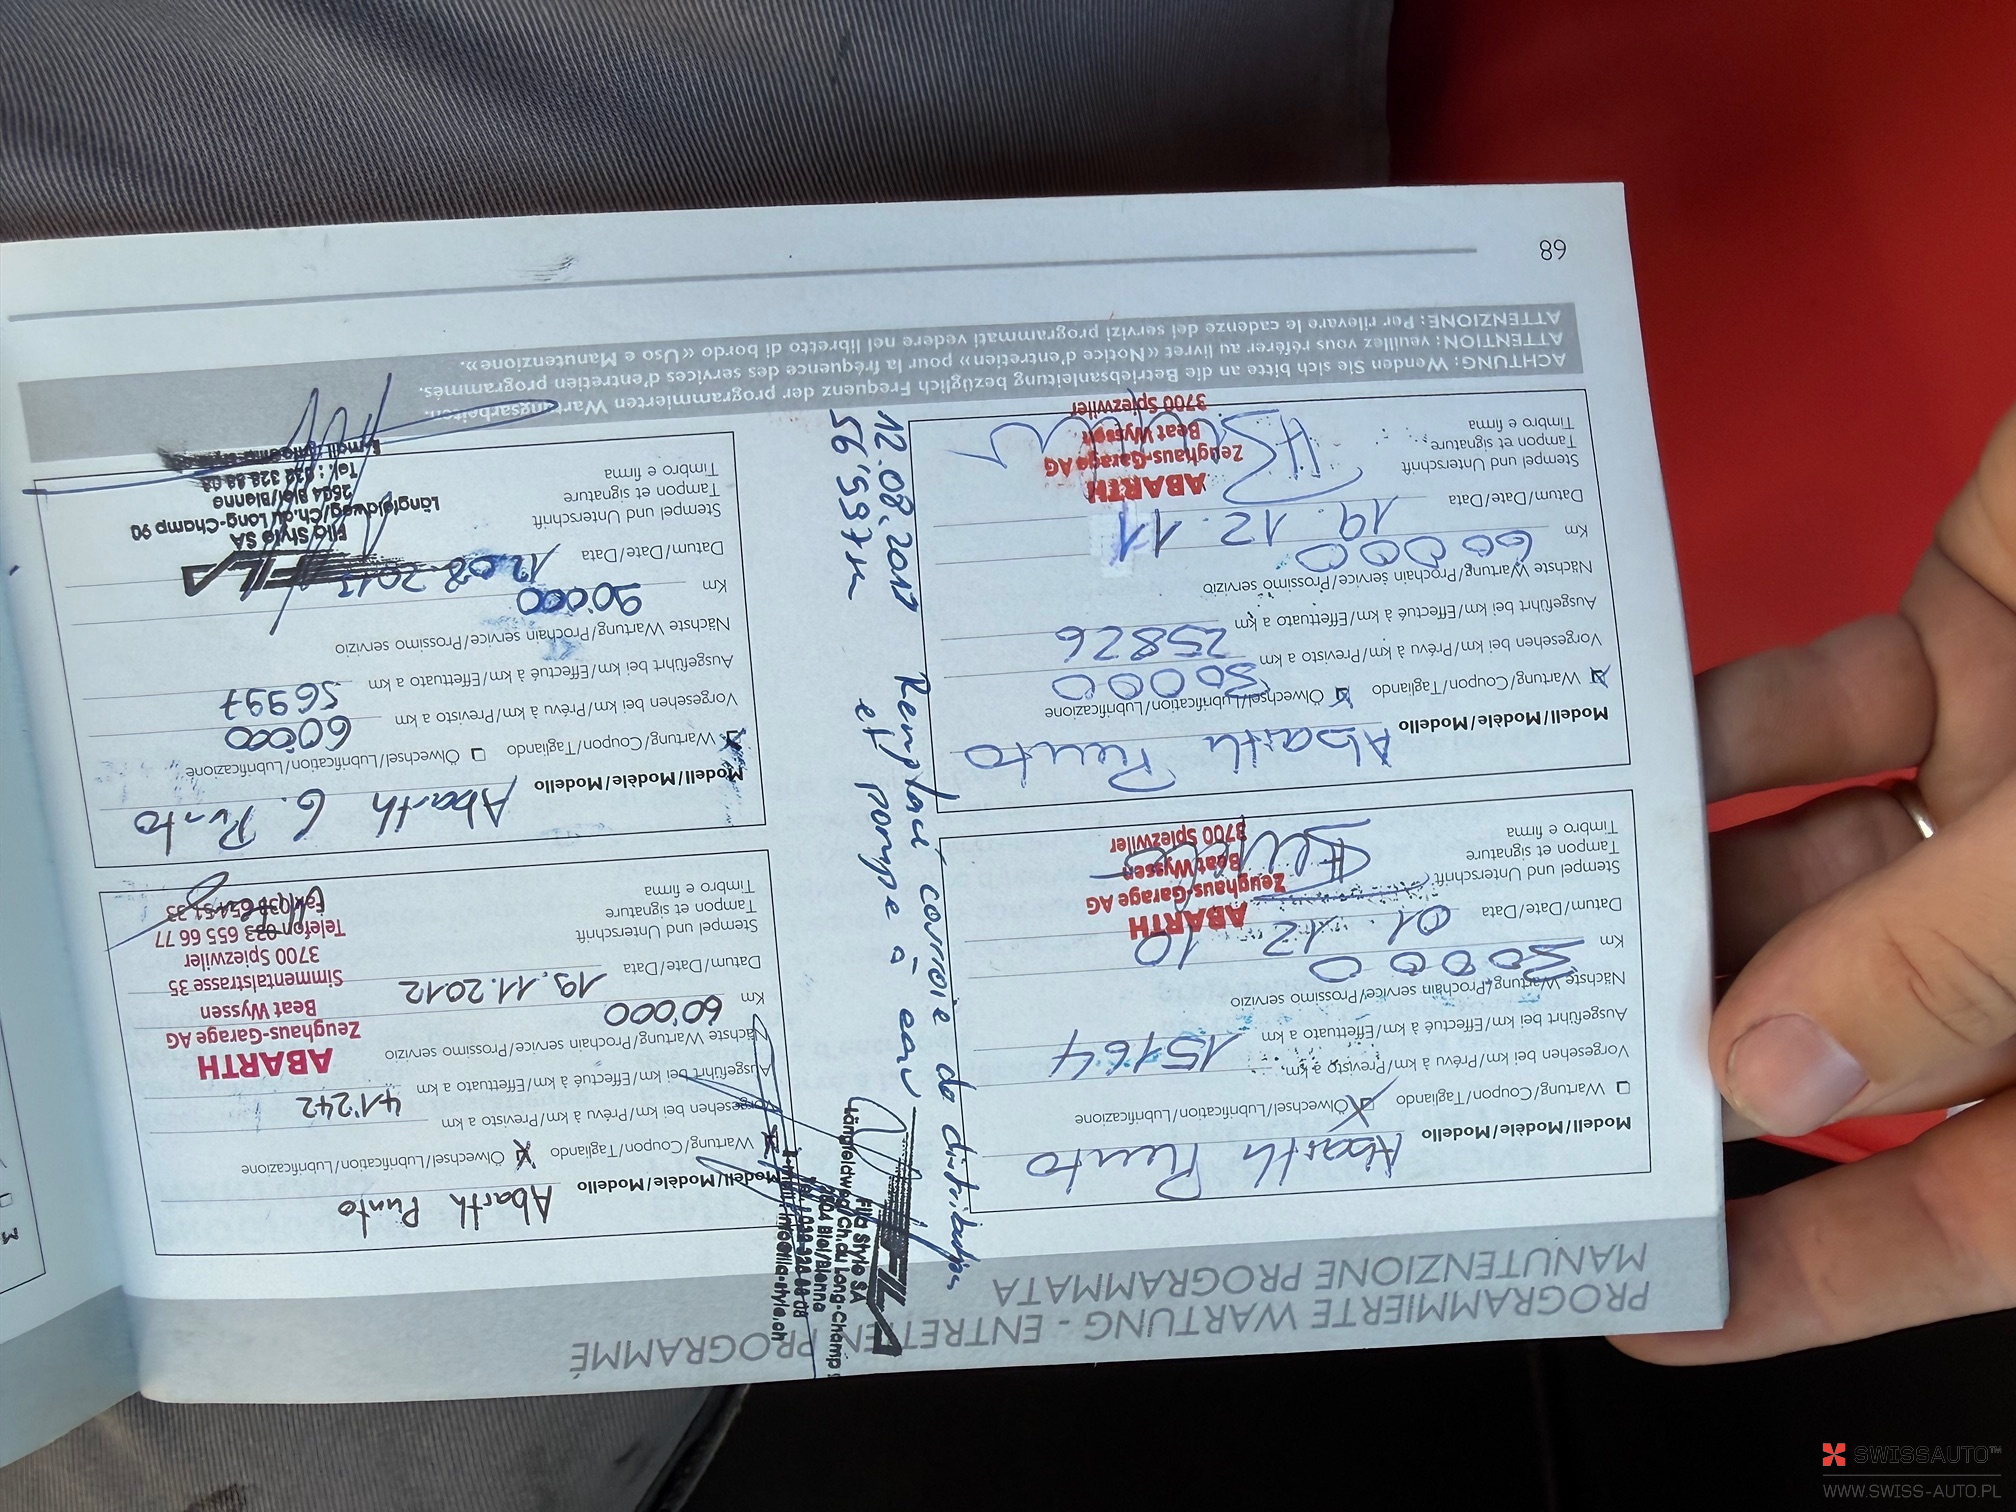 PROGRAMMIERTE WARTUNG - ENTRETIEN PROGRAMMÉ
MANUTENZIONE PROGRAMMATA
Modell/Modèle/Modello Abarth Punto
Wartung/Coupon/Tagliando Ölwechsel/Lubrification/Lubrificazione
Vorgesehen bei km/Prévu à km/Previsto a km
Ausgeführt bei km/Effectué à km/Effettuato a km 15164
Nächste Wartung/Prochain service/Prossimo servizio
Km 30000
Datum/Date/Data 01.12.10
Stempel und Unterschrift
Tampon et signature
Timbro e firma
ABARTH
Zeughaus-Garage AG
Beat Wyssen
3700 Spiezwiler
Modell/Modèle/Modello Abarth Punto
Wartung/Coupon/Tagliando Ölwechsel/Lubrification/Lubrificazione
Vorgesehen bei km/Prévu à km/Previsto a km
Ausgeführt bei km/Effectué à km/Effettuato a km 41'242
Nächste Wartung/Prochain service/Prossimo servizio
Km 60'000
Datum/Date/Data 19.11.2012
Stempel und Unterschrift
Tampon et signature
Timbro e firma
ABARTH
Zeughaus-Garage AG
Beat Wyssen
Simmentalstrasse 35
3700 Spiezwiler
Telefon 033 655 66 77
Modell/Modèle/Modello Abarth Punto
Wartung/Coupon/Tagliando Ölwechsel/Lubrification/Lubrificazione
Vorgesehen bei km/Prévu à km/Previsto a km 30000
Ausgeführt bei km/Effectué à km/Effettuato a km 25826
Nächste Wartung/Prochain service/Prossimo servizio
Km 60000
Datum/Date/Data 19.12.11
Stempel und Unterschrift
Tampon et signature
Timbro e firma
ABARTH
Zeughaus-Garage AG
Beat Wyssen
3700 Spiezwiler
Modell/Modèle/Modello Abarth G. Punto
Wartung/Coupon/Tagliando Ölwechsel/Lubrification/Lubrificazione
Vorgesehen bei km/Prévu à km/Previsto a km 60'000
Ausgeführt bei km/Effectué à km/Effettuato a km 56997
Nächste Wartung/Prochain service/Prossimo servizio
Km 90'000
Datum/Date/Data 12.08.2013
Stempel und Unterschrift
Tampon et signature
Timbro e firma
FILA
Fila Style SA
Längfeldweg/Ch.du Long-Champ 90
2504 Biel/Bienne
Tel.: 032 328 88 08
12.08.2013 Remplacé courroie de distribution
56'997 km et pompe à eau
FILA
Fila Style SA
Längfeldweg/Ch.du Long-Champ
2504 Biel/Bienne
ACHTUNG: Wenden Sie sich bitte an die Betriebsanleitung bezüglich Frequenz der programmierten Wartungsarbeiten.
ATTENTION: veuillez vous référer au livret «Notice d'entretien» pour la fréquence des services d'entretien programmés.
ATTENZIONE: Per rilevare le cadenze dei servizi programmati vedere nel libretto di bordo «Uso e Manutenzione».
68
SWISSAUTO™
WWW.SWISS-AUTO.PL